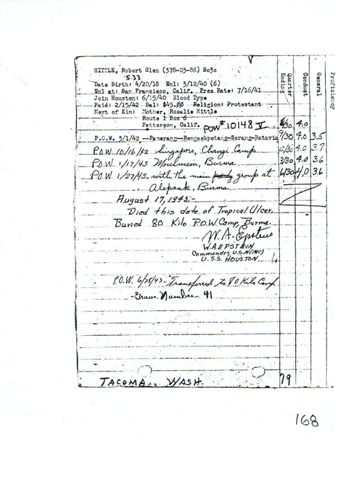 Proficiency
General
Conduct
Quarter Ending
HITTLE, Robert Glen (378-03-86) Sc3c
5.33
Date Birth: 4/20/18 Enl: 3/12/40 (6)
Enl at: San Francisco, Calif. Pres Rate: 7/16/41
Join Houston: 6/15/40 Blood Type
Paid: 2/15/42 Bal: Religion: Protestant
Next of Kin: Mother, Rosalie Hittle
Route 1 Box 6
Patterson, Calif. POW #10143 V. 4.0
P.O.W. 3/1/42 -Pamarang-Rangskpetang-Serang-Batavia 9/30 4.0 3.5
P.O.W. 10/16/42 Singapore, Changi Camp. 4.0 3.7
P.O.W. 1/17/43 Moulmein, Burma. 3/30 4.0 3.6
P.O.W. 1/27/43. with the main group at 6/30 4.0 3.6
Alepauk, Burma.
August 17, 1943:-
Died this date of Tropical Ulcer.
Buried 80 Kilo P.O.W Camp, Burma.
W.A. Epstein
W.A. EPSTEIN
Commander, U.S.N(MC)
U.S.S. HOUSTON
P.O.W. Transferred to 80 Kilo Camp
Grave Number - 41
TACOMA. WASH. 79
168